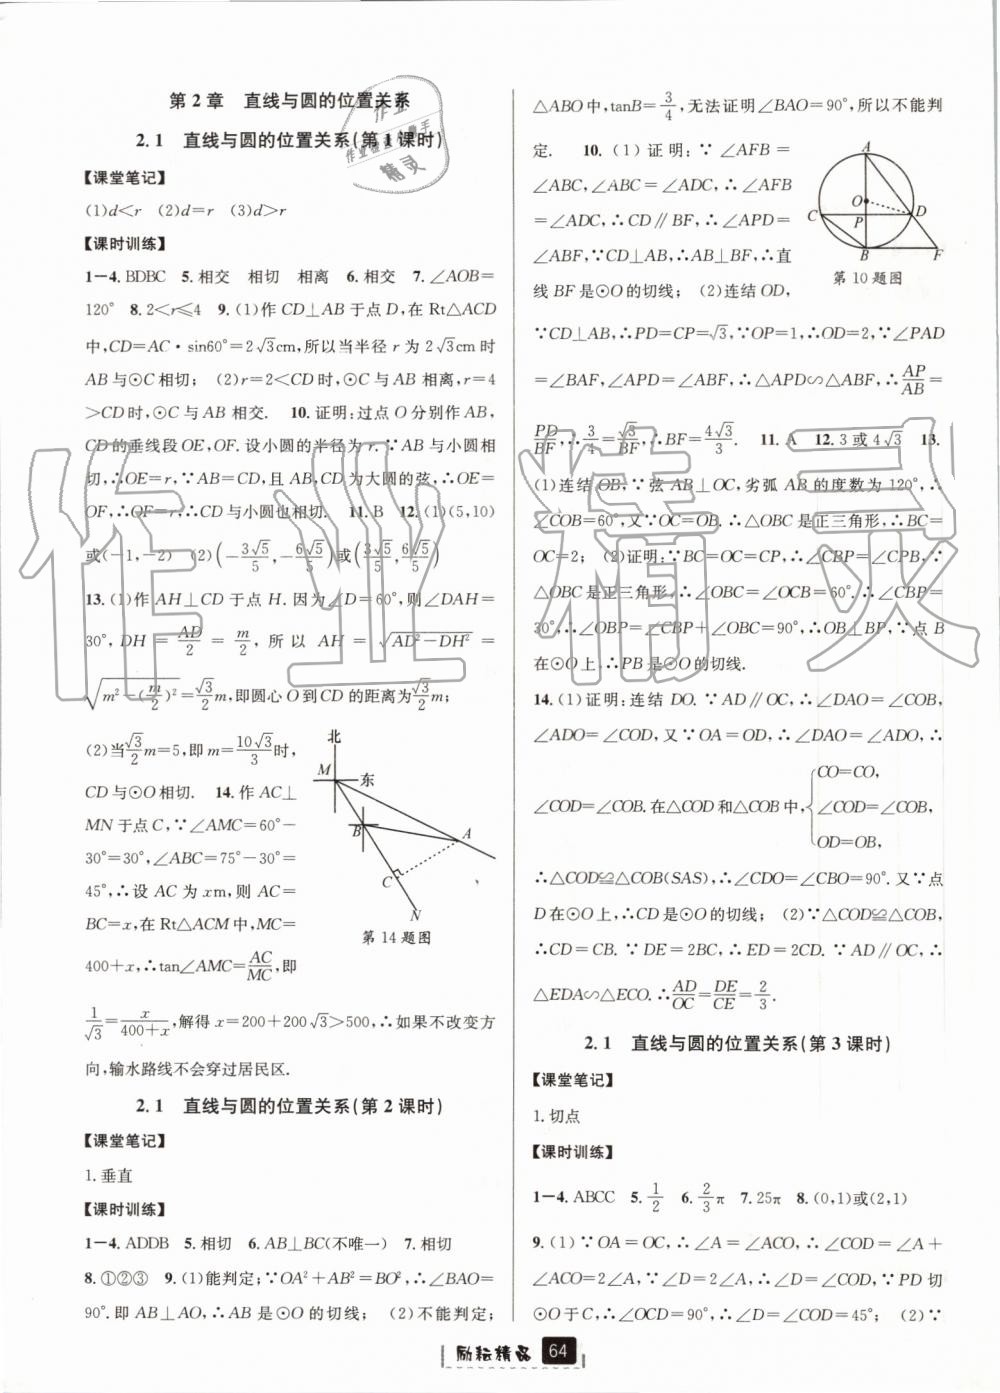 第2章 直线与圆的位置关系
2.1 直线与圆的位置关系(第1课时)
【课堂笔记】
(1)d<r (2)d=r (3)d>r
【课时训练】
1—4. BDBC 5. 相交 相切 相离 6. 相交 7. ∠AOB=
120° 8. 2<r≤4 9. (1)作CD⊥AB于点D,在Rt△ACD
中,CD=AC·sin60°=2√3cm,所以当半径r为2√3cm时
AB与⊙C相切; (2)r=2<CD时,⊙C与AB相离,r=4
>CD时,⊙C与AB相交. 10. 证明:过点O分别作AB,
CD的垂线段OE,OF. 设小圆的半径为r,∵AB与小圆相
切,∴OE=r,∵AB=CD,且AB,CD为大圆的弦,∴OE=
OF,∴OF=r,∴CD与小圆也相切. 11. B 12. (1)(5,10)
或(-1,-2) (2)(-3√5/5,-6√5/5)或(3√5/5,6√5/5)
13. (1)作AH⊥CD于点H. 因为∠D=60°,则∠DAH=
30°,DH=AD/2=m/2,所以AH=√(AD²-DH²)=
√(m²-(m/2)²)=√3/2m,即圆心O到CD的距离为√3/2m;
(2)当√3/2m=5,即m=10√3/3时,
CD与⊙O相切. 14. 作AC⊥
MN于点C,∵∠AMC=60°-
30°=30°,∠ABC=75°-30°=
45°,∴设AC为xm,则AC=
BC=x,在Rt△ACM中,MC=
400+x,∴tan∠AMC=AC/MC,即
1/√3=x/(400+x),解得x=200+200√3>500,∴如果不改变方
向,输水路线不会穿过居民区.
北
M
东
B
A
C
N
第14题图
2.1 直线与圆的位置关系(第2课时)
【课堂笔记】
1. 垂直
【课时训练】
1—4. ADDB 5. 相切 6. AB⊥BC(不唯一) 7. 相切
8. ①②③ 9. (1)能判定;∵OA²+AB²=BO²,∴∠BAO=
90°. 即AB⊥AO,∴AB是⊙O的切线; (2)不能判定;
△ABO中,tanB=3/4,无法证明∠BAO=90°,所以不能判
定. 10. (1)证明:∵∠AFB=
∠ABC,∠ABC=∠ADC,∴∠AFB
=∠ADC,∴CD∥BF,∴∠APD=
∠ABF,∵CD⊥AB,∴AB⊥BF,∴直
线BF是⊙O的切线; (2)连结OD,
A
O
C
D
P
B
F
第10题图
∵CD⊥AB,∴PD=CP=√3,∵OP=1,∴OD=2,∵∠PAD
=∠BAF,∠APD=∠ABF,∴△APD∽△ABF,∴AP/AB=
PD/BF,∴3/4=√3/BF,∴BF=4√3/3. 11. A 12. 3或4√3 13.
(1)连结OB,∵弦AB⊥OC,劣弧AB的度数为120°,∴
∠COB=60°,又∵OC=OB. ∴△OBC是正三角形,∴BC=
OC=2; (2)证明:∵BC=OC=CP,∴∠CBP=∠CPB,∵
△OBC是正三角形,∴∠OBC=∠OCB=60°. ∴∠CBP=
30°,∴∠OBP=∠CBP+∠OBC=90°,∴OB⊥BP,∵点B
在⊙O上,∴PB是⊙O的切线.
14. (1)证明:连结DO. ∵AD∥OC,∴∠DAO=∠COB,
∠ADO=∠COD,又∵OA=OD,∴∠DAO=∠ADO,∴
∠COD=∠COB. 在△COD和△COB中,{CO=CO,
∠COD=∠COB,
OD=OB,
∴△COD≌△COB(SAS),∴∠CDO=∠CBO=90°. 又∵点
D在⊙O上,∴CD是⊙O的切线; (2)∵△COD≌△COB,
∴CD=CB. ∵DE=2BC,∴ED=2CD. ∵AD∥OC,∴
△EDA∽△ECO. ∴AD/OC=DE/CE=2/3.
2.1 直线与圆的位置关系(第3课时)
【课堂笔记】
1. 切点
【课时训练】
1—4. ABCC 5. 1/2 6. 2/3π 7. 25π 8. (0,1)或(2,1)
9. (1)∵OA=OC,∴∠A=∠ACO,∴∠COD=∠A+
∠ACO=2∠A,∵∠D=2∠A,∴∠D=∠COD,∵PD切
⊙O于C,∴∠OCD=90°,∴∠D=∠COD=45°; (2)∵
励耘精品 64
作业精灵